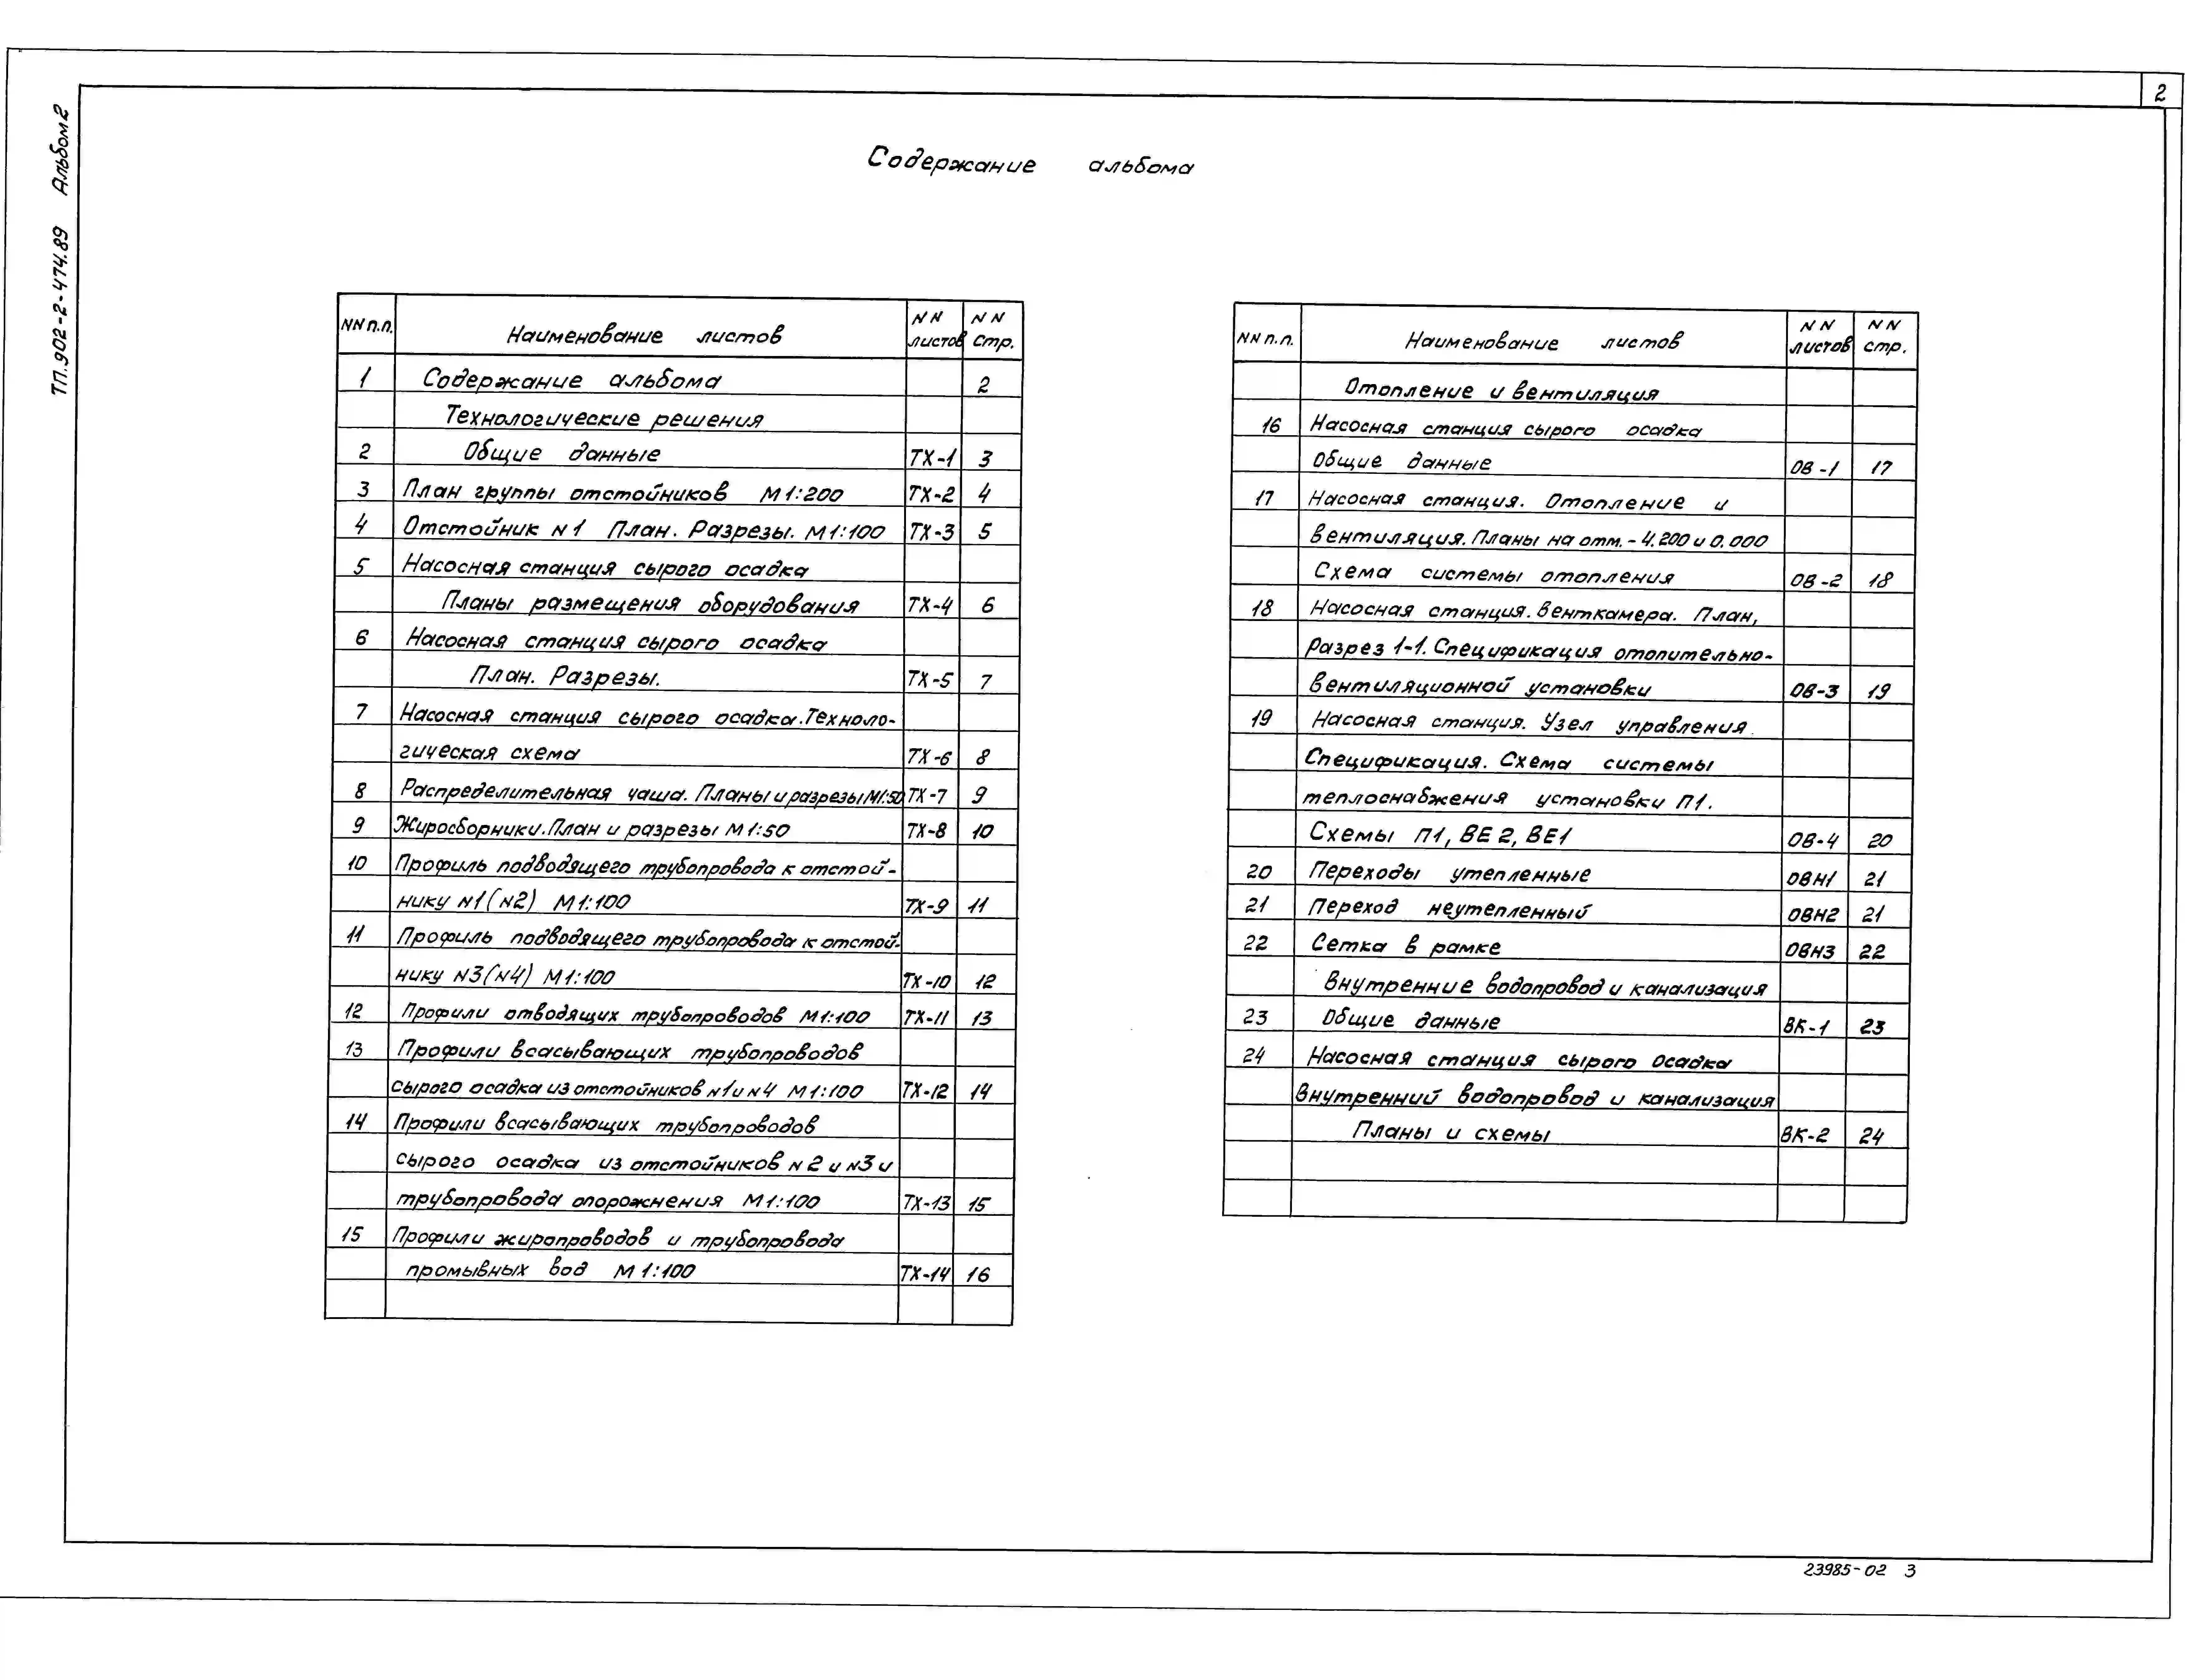 2
ТП.902-2-474.89 Альбом 2
Содержание альбома
NN п.п. Наименование листов NN листов NN стр.
1 Содержание альбома 2
Технологические решения
2 Общие данные ТХ-1 3
3 План группы отстойников М 1:200 ТХ-2 4
4 Отстойник N1 План. Разрезы. М 1:100 ТХ-3 5
5 Насосная станция сырого осадка
Планы размещения оборудования ТХ-4 6
6 Насосная станция сырого осадка
План. Разрезы. ТХ-5 7
7 Насосная станция сырого осадка. Техноло-
гическая схема ТХ-6 8
8 Распределительная чаша. Планы и разрезы М1:50 ТХ-7 9
9 Жиросборники. План и разрезы М 1:50 ТХ-8 10
10 Профиль подводящего трубопровода к отстой-
нику N1 (N2) М 1:100 ТХ-9 11
11 Профиль подводящего трубопровода к отстой-
нику N3 (N4) М 1:100 ТХ-10 12
12 Профили отводящих трубопроводов М 1:100 ТХ-11 13
13 Профили всасывающих трубопроводов
сырого осадка из отстойников N1 и N4 М 1:100 ТХ-12 14
14 Профили всасывающих трубопроводов
сырого осадка из отстойников N2 и N3 и
трубопровода опорожнения М 1:100 ТХ-13 15
15 Профили жиропроводов и трубопровода
промывных вод М 1:100 ТХ-14 16
NN п.п. Наименование листов NN листов NN стр.
Отопление и вентиляция
16 Насосная станция сырого осадка
Общие данные ОВ-1 17
17 Насосная станция. Отопление и
вентиляция. Планы на отм. -4.200 и 0.000
Схема системы отопления ОВ-2 18
18 Насосная станция. Венткамера. План,
Разрез 1-1. Спецификация отопительно-
вентиляционной установки ОВ-3 19
19 Насосная станция. Узел управления.
Спецификация. Схема системы
теплоснабжения установки П1.
Схемы П1, ВЕ2, ВЕ1 ОВ-4 20
20 Переходы утепленные ОВН1 21
21 Переход неутепленный ОВН2 21
22 Сетка в рамке ОВН3 22
Внутренние водопровод и канализация
23 Общие данные ВК-1 23
24 Насосная станция сырого осадка
Внутренний водопровод и канализация
Планы и схемы ВК-2 24
23985-02 3